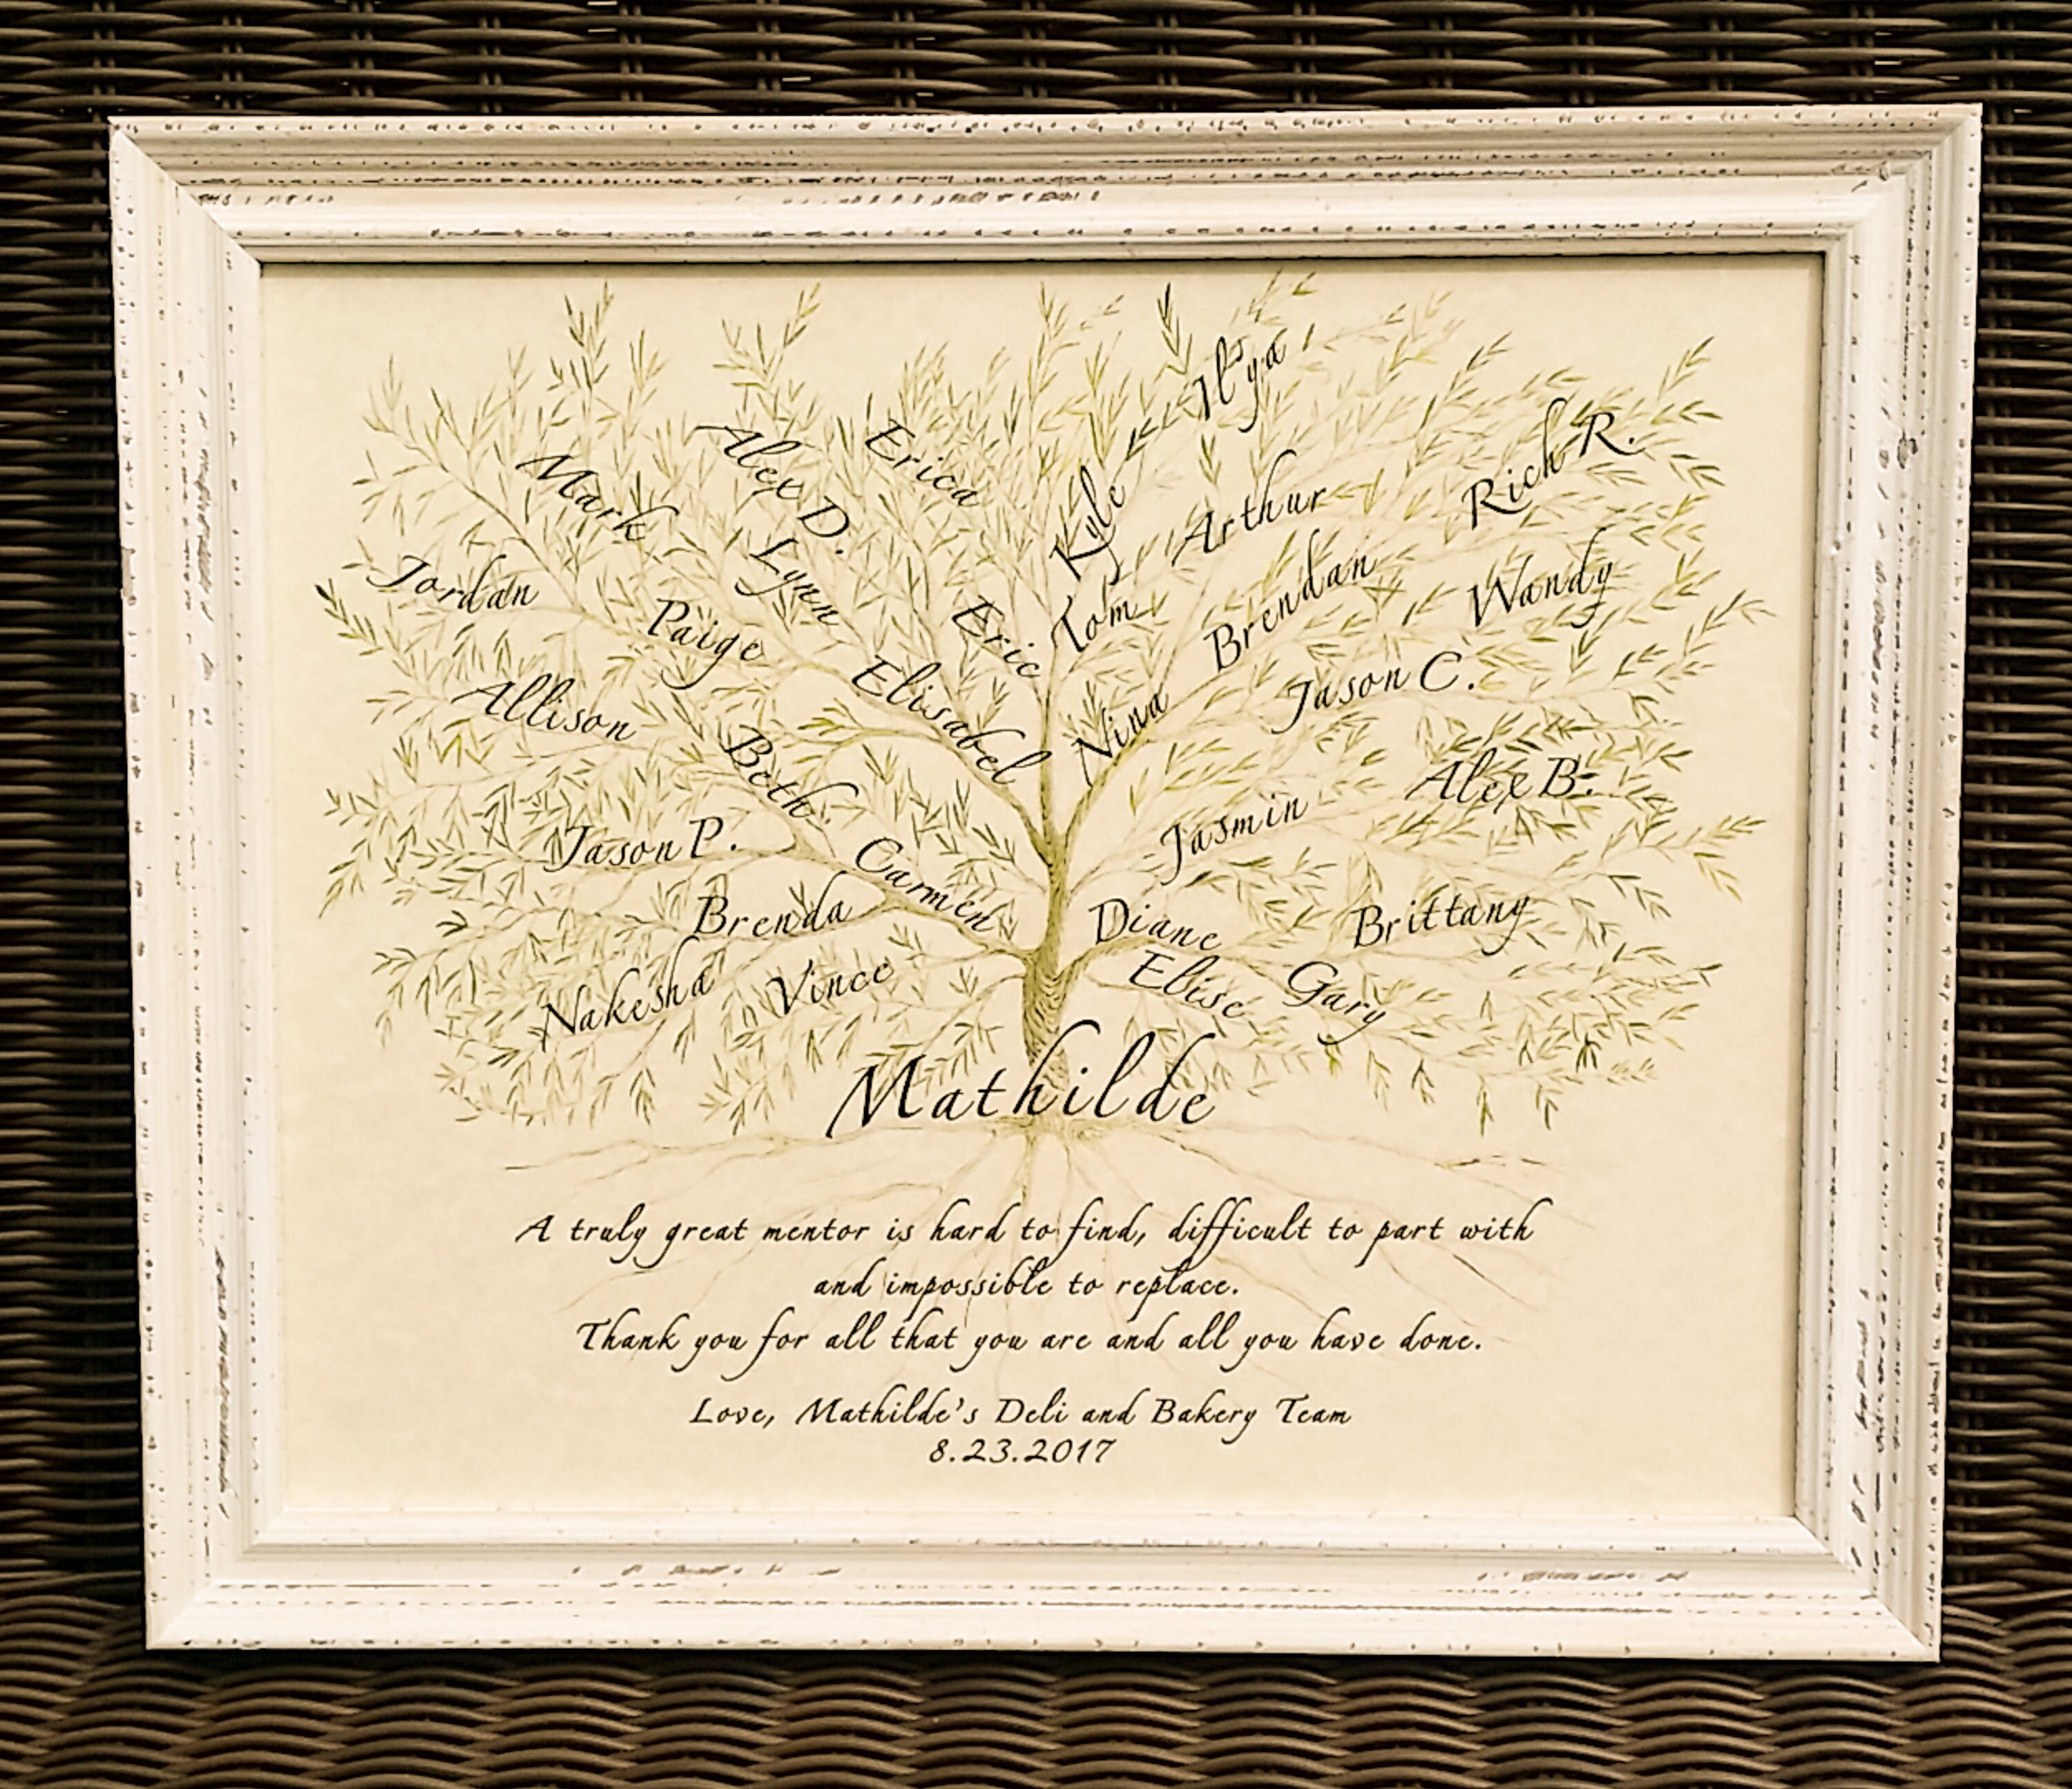 Il'ya
Erica
Alex D.
Rich R.
Mark
Kyle
Arthur
Jordan
Lynn
Wandy
Brendan
Tom
Eric
Paige
Jason C.
Elisabel
Allison
Nina
Beth
Alex B.
Jasmin
Jason P.
Carmen
Brenda
Diane
Brittany
Elise
Gary
Vince
Nakesha
Mathilde
A truly great mentor is hard to find, difficult to part with
and impossible to replace.
Thank you for all that you are and all you have done.
Love, Mathilde's Deli and Bakery Team
8.23.2017